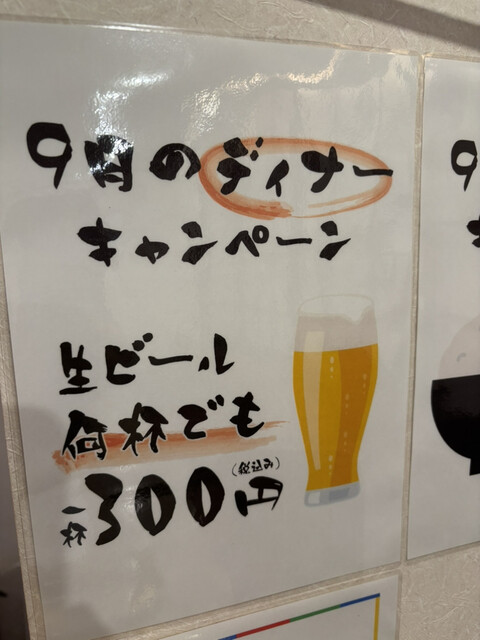 9月のディナー
キャンペーン
生ビール
何杯でも
一杯300円(税込み)
9